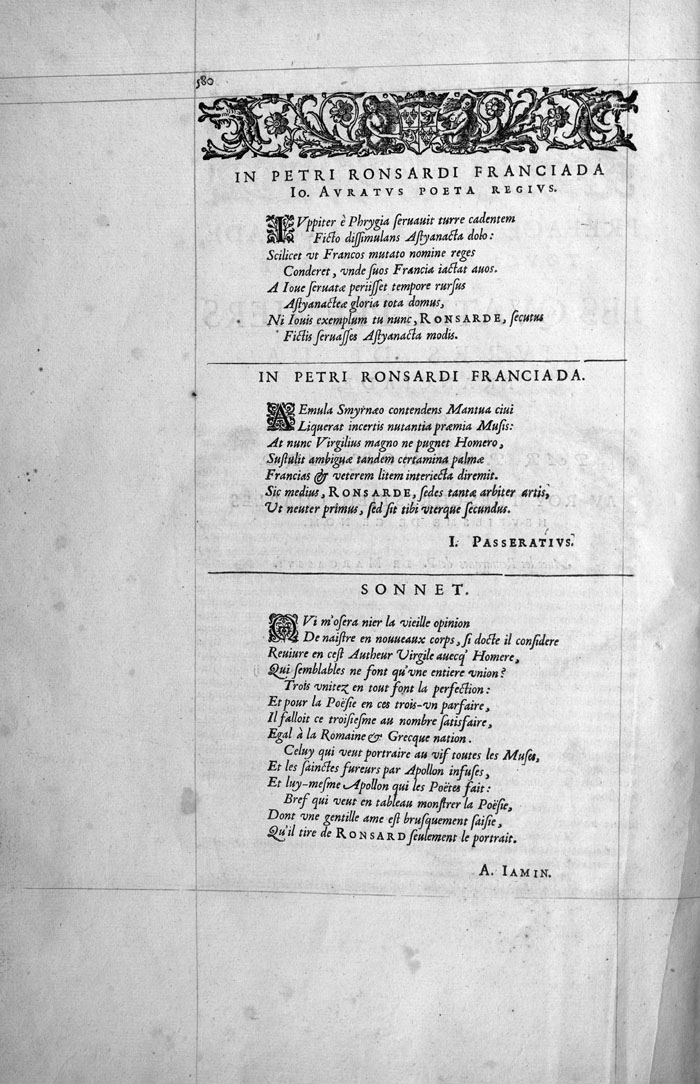 580
IN PETRI RONSARDI FRANCIADA
IO. AVRATVS POETA REGIVS.
IVppiter è Phrygia ſeruauit turre cadentem
Ficto diſſimulans Aſtyanacta dolo:
Scilicet vt Francos mutato nomine reges
Conderet, vnde ſuos Francia iactat auos.
A Ioue ſeruatæ periiſſet tempore rurſus
Aſtyanacteæ gloria tota domus,
Ni Iouis exemplum tu nunc, RONSARDE, ſecutus
Fictis ſeruaſſes Aſtyanacta modis.
IN PETRI RONSARDI FRANCIADA.
AEmula Smyrnæo contendens Mantua ciui
Liquerat incertis nutantia præmia Muſis:
At nunc Virgilius magno ne pugnet Homero,
Suſtulit ambiguæ tandem certamina palmæ
Francias & veterem litem interiecta diremit.
Sic medius, RONSARDE, ſedes tantæ arbiter artis,
Vt neuter primus, ſed ſit tibi vterque ſecundus.
I. PASSERATIVS.
SONNET.
QVi m'oſera nier la vieille opinion
De naiſtre en nouueaux corps, ſi docte il conſidere
Reuiure en ceſt Autheur Virgile auecq' Homere,
Qui ſemblables ne font qu'vne entiere vnion?
Trois vnitez en tout font la perfection:
Et pour la Poëſie en ces trois-vn parfaire,
Il falloit ce troiſieſme au nombre ſatisfaire,
Egal à la Romaine & Grecque nation.
Celuy qui veut portraire au vif toutes les Muſes,
Et les ſainctes fureurs par Apollon infuſes,
Et luy-meſme Apollon qui les Poëtes fait:
Bref qui veut en tableau monſtrer la Poëſie,
Dont vne gentille ame eſt bruſquement ſaiſie,
Qu'il tire de RONSARD ſeulement le portrait.
A. IAMIN.